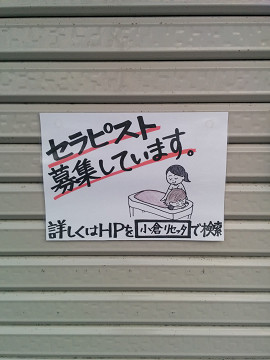 セラピスト
募集しています。
詳しくはHPを小倉リセッタで検索